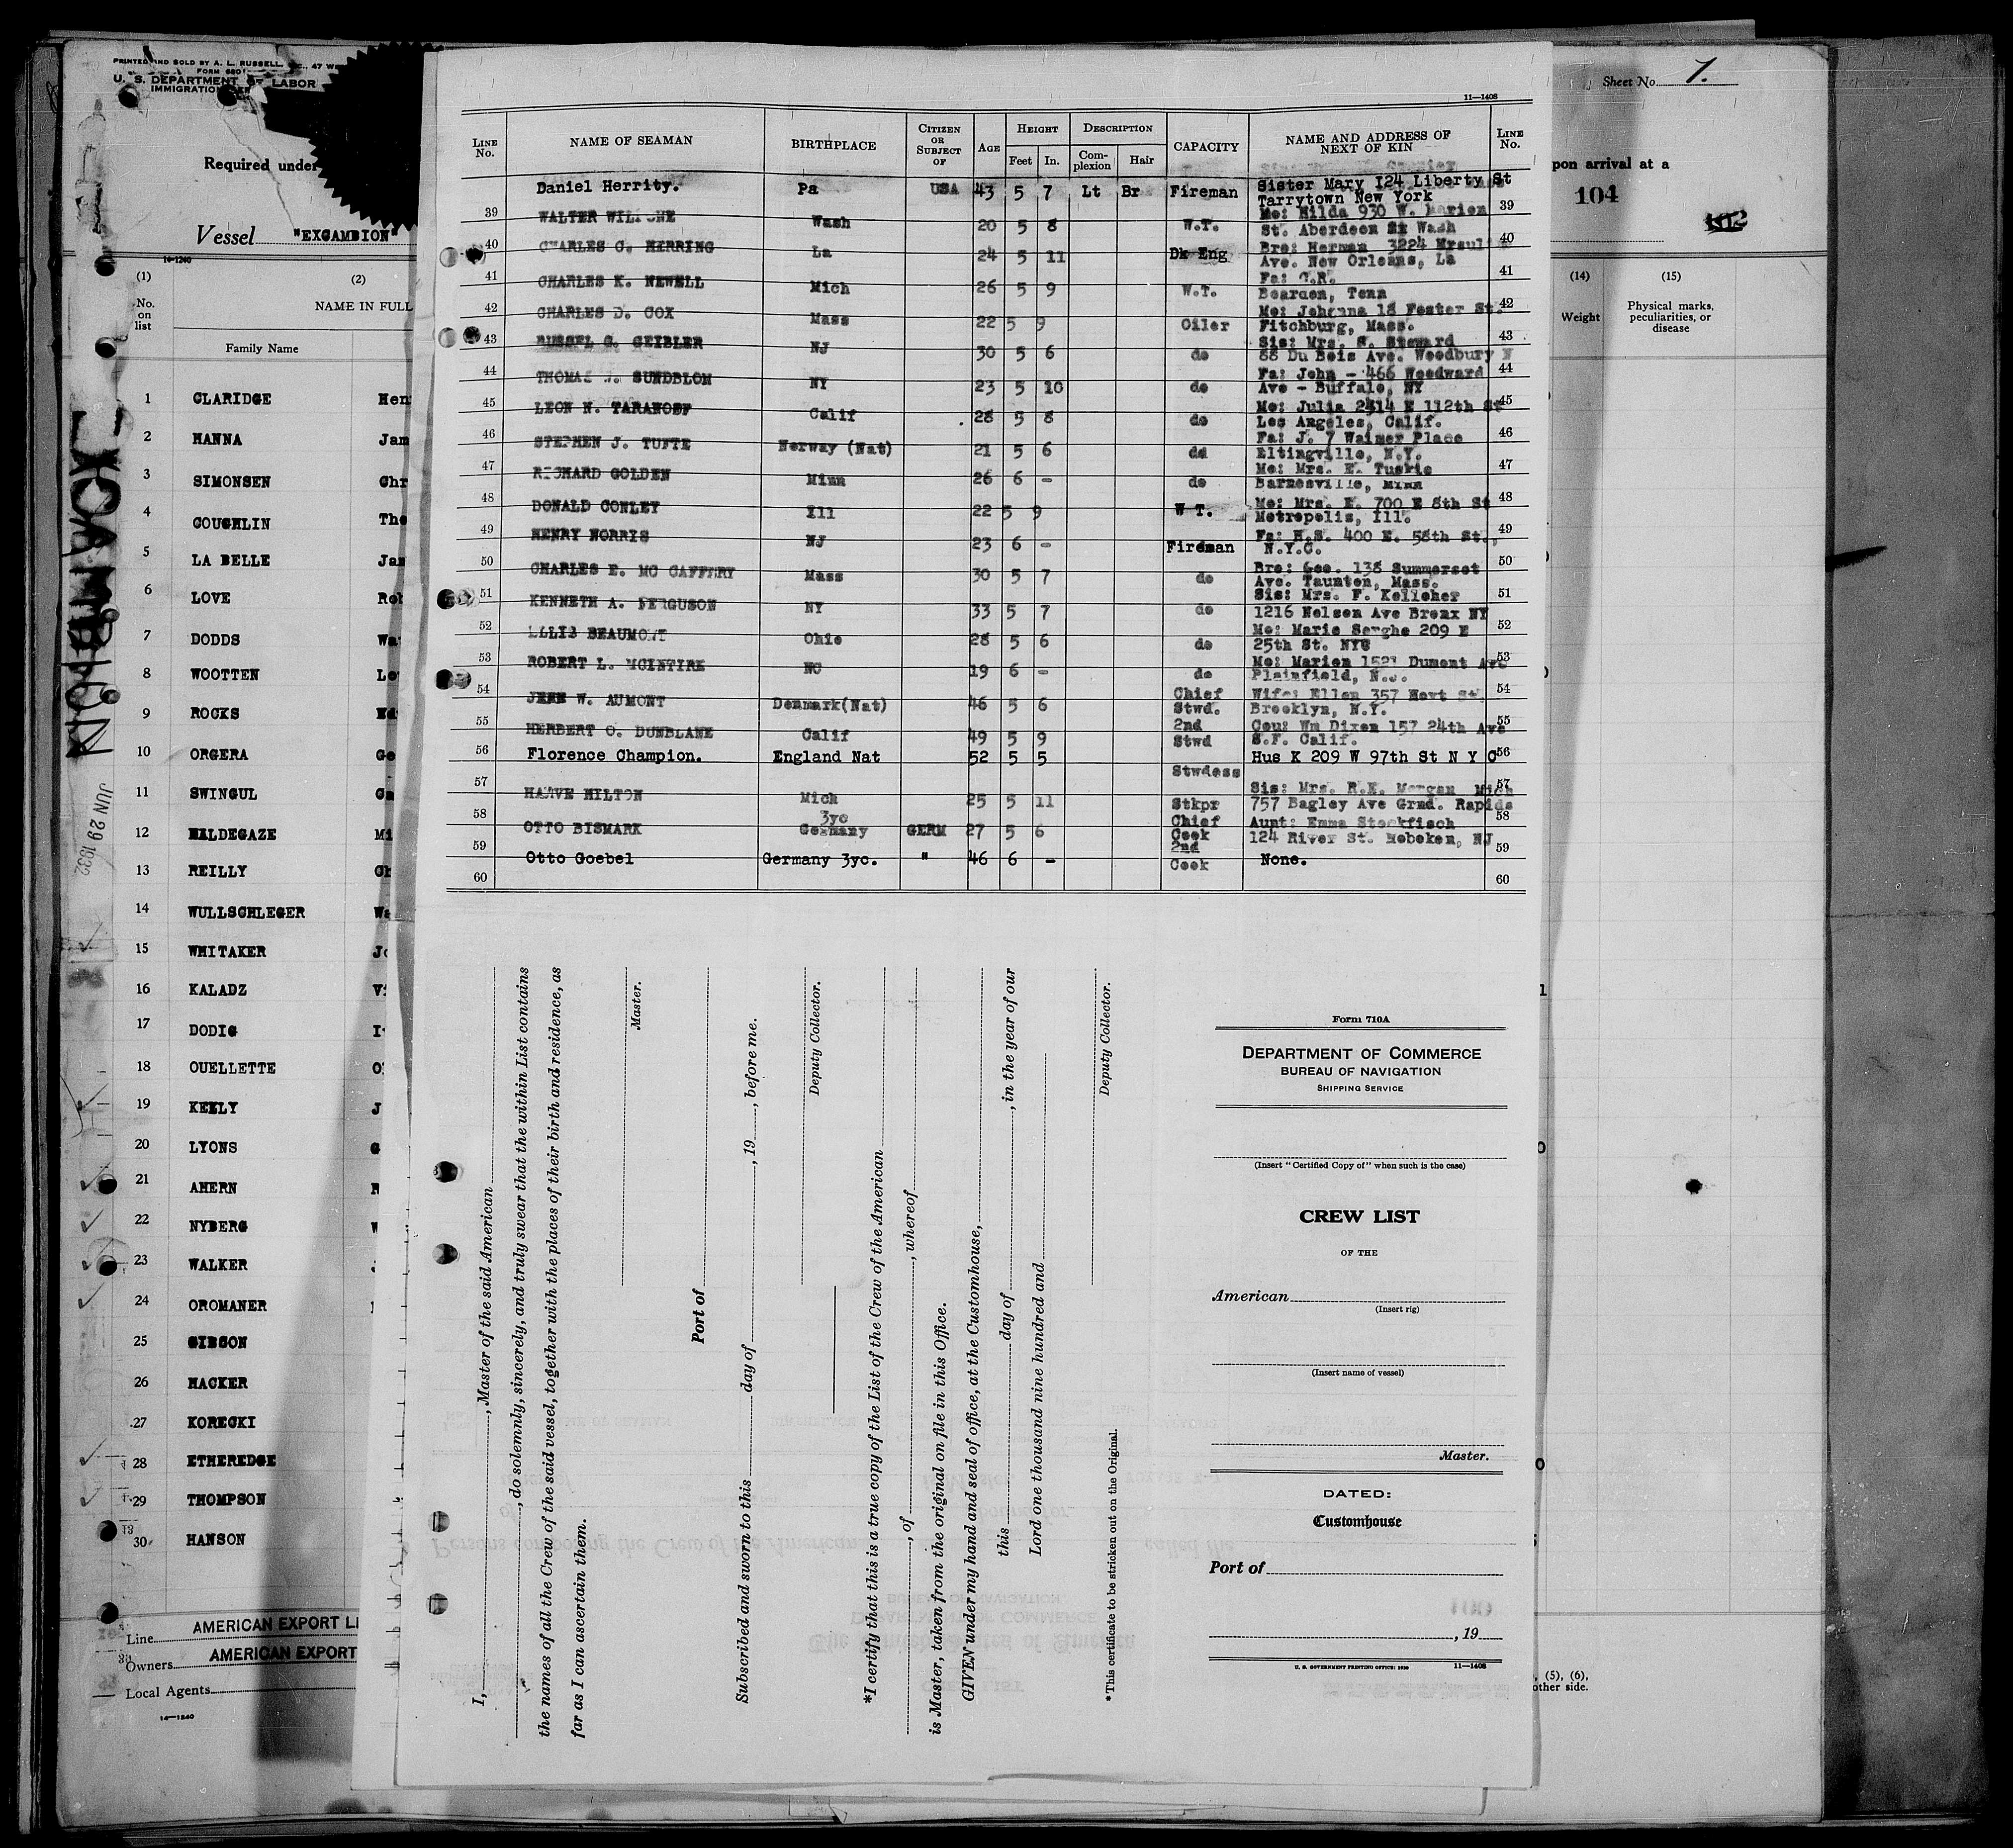 PRINTED AND SOLD BY A. L. RUSSELL,
U. S. DEPARTMENT OF LABOR
IMMIGRATION
Required under
Vessel "EXCAMBION"
14-1240
(1) (2)
No. on list NAME IN FULL
Family Name
1 CLARIDGE Hen
2 HANNA Jam
3 SIMONSEN Chr
4 COUGHLIN The
5 LA BELLE Jam
6 LOVE Rob
7 DODDS Wa
8 WOOTTEN
9 ROCKS Ed
10 ORGERA Ge
11 SWINGUL
12 HILDEGAZE Mi
13 REILLY Ch
14 WULLSCHLEGER Wa
15 WHITAKER Jo
16 KALADZ Vi
17 DODIG
18 OUELLETTE
19 KEELY J
20 LYONS G
21 AHERN
22 NYBERG
23 WALKER
24 OROMANER
25 GIBSON
26 HACKER
27 KORECKI
28 ETHEREDGE
29 THOMPSON
30 HANSON
Line AMERICAN EXPORT LI
Owners AMERICAN EXPORT
Local Agents
14-1240
EXCAMBION
JUN 29 1932
11—1408
LINE No. NAME OF SEAMAN BIRTHPLACE CITIZEN OR SUBJECT OF AGE HEIGHT DESCRIPTION CAPACITY NAME AND ADDRESS OF NEXT OF KIN LINE No.
Feet In. Complexion Hair
Daniel Herrity. Pa USA 43 5 7 Lt Br Fireman Sister Mary 124 Liberty St
Tarrytown New York
39 WALTER Wash 20 5 8 W.T. Mo: Hilda 930 W. Marion 39
St. Aberdeen Wash
40 CHARLES C. HERRING La 24 5 11 Dk Eng Bro: Herman 3224 40
Ave. New Orleans, La
41 CHARLES K. NEWELL Mich 26 5 9 W.T. Fa: C.R. 41
Bearden, Tenn
42 CHARLES D. COX Mass 22 5 9 Oiler Mo: Johanna 18 Foster St. 42
Fitchburg, Mass.
43 RUSSEL G. GEIBLER NJ 30 5 6 do Sis: Mrs. S. Steward 43
88 Du Bois Ave. Woodbury N
44 THOMAS SUNDBLOM NY 23 5 10 do Fa: John - 466 Woodward 44
Ave - Buffalo, NY
45 LEON N. TARANOFF Calif 28 5 8 do Mo: Julia 2414 E 112th St 45
Los Angeles, Calif.
46 STEPHEN J. TUFTE Norway (Nat) 21 5 6 do Fa: J. 7 Waimer Place 46
Eltingville, N.Y.
47 RICHARD GOLDEN Minn 26 6 - do Mo: Mrs. E. Tuskie 47
Barnesville, Minn
48 DONALD CONLEY Ill 22 5 9 W T. Mo: Mrs. E. 700 E 8th St 48
Metropolis, Ill.
49 HENRY NORRIS NJ 23 6 - Fireman Fa: H.S. 400 E. 58th St., 49
N.Y.C.
50 CHARLES E. MC CAFFERY Mass 30 5 7 do Bro: Geo. 138 Summerset 50
Ave. Taunton, Mass.
51 KENNETH A. FERGUSON NY 33 5 7 do Sis: Mrs. F. Kelleher 51
1216 Nelson Ave Bronx NY
52 ELLIS BEAUMONT Ohio 28 5 6 do Mo: Marie Serghe 209 E 52
25th St. NYC
53 ROBERT L. MCINTIRE NC 19 6 - do Mo: Marion Dumont Ave 53
Plainfield, N.J.
54 W. AUMONT Denmark(Nat) 46 5 6 Chief Stwd. Wife: Ellen 357 Hoyt St, 54
Brooklyn, N.Y.
55 HERBERT O. DUNBLANE Calif 49 5 9 2nd Stwd Cou: Wm Dixon 157 24th Ave 55
S.F. Calif.
56 Florence Champion. England Nat 52 5 5 Stwdess Hus K 209 W 97th St N Y C 56
57 HILTON Mich 25 5 11 Stkpr Sis: Mrs. R.E. Morgan Mich 57
757 Bagley Ave Grnd. Rapids
58 OTTO BISMARK 3yc Germany GERM 27 5 6 Chief Cook Aunt: Emma Stockfisch 58
124 River St. Hoboken, NJ
59 Otto Goebel Germany 3yc. " 46 6 - 2nd Cook None. 59
60 60
I, , Master of the said American
, do solemnly, sincerely, and truly swear that the within List contains
the names of all the Crew of the said vessel, together with the places of their birth and residence, as
far as I can ascertain them.
Master.
Port of
Subscribed and sworn to this day of , 19 , before me.
Deputy Collector.
*I certify that this is a true copy of the List of the Crew of the American
, of , whereof
is Master, taken from the original on file in this Office.
GIVEN under my hand and seal of office, at the Customhouse,
this day of , in the year of our
Lord one thousand nine hundred and
Deputy Collector.
*This certificate to be stricken out on the Original.
Form 710A
DEPARTMENT OF COMMERCE
BUREAU OF NAVIGATION
SHIPPING SERVICE
(Insert "Certified Copy of" when such is the case)
CREW LIST
OF THE
American
(Insert rig)
(Insert name of vessel)
Master.
DATED:
Customhouse
Port of
, 19
U. S. GOVERNMENT PRINTING OFFICE: 1930 11—1408
Sheet No. 7.
pon arrival at a
104
(14) (15)
Weight Physical marks, peculiarities, or disease
, (5), (6),
other side.